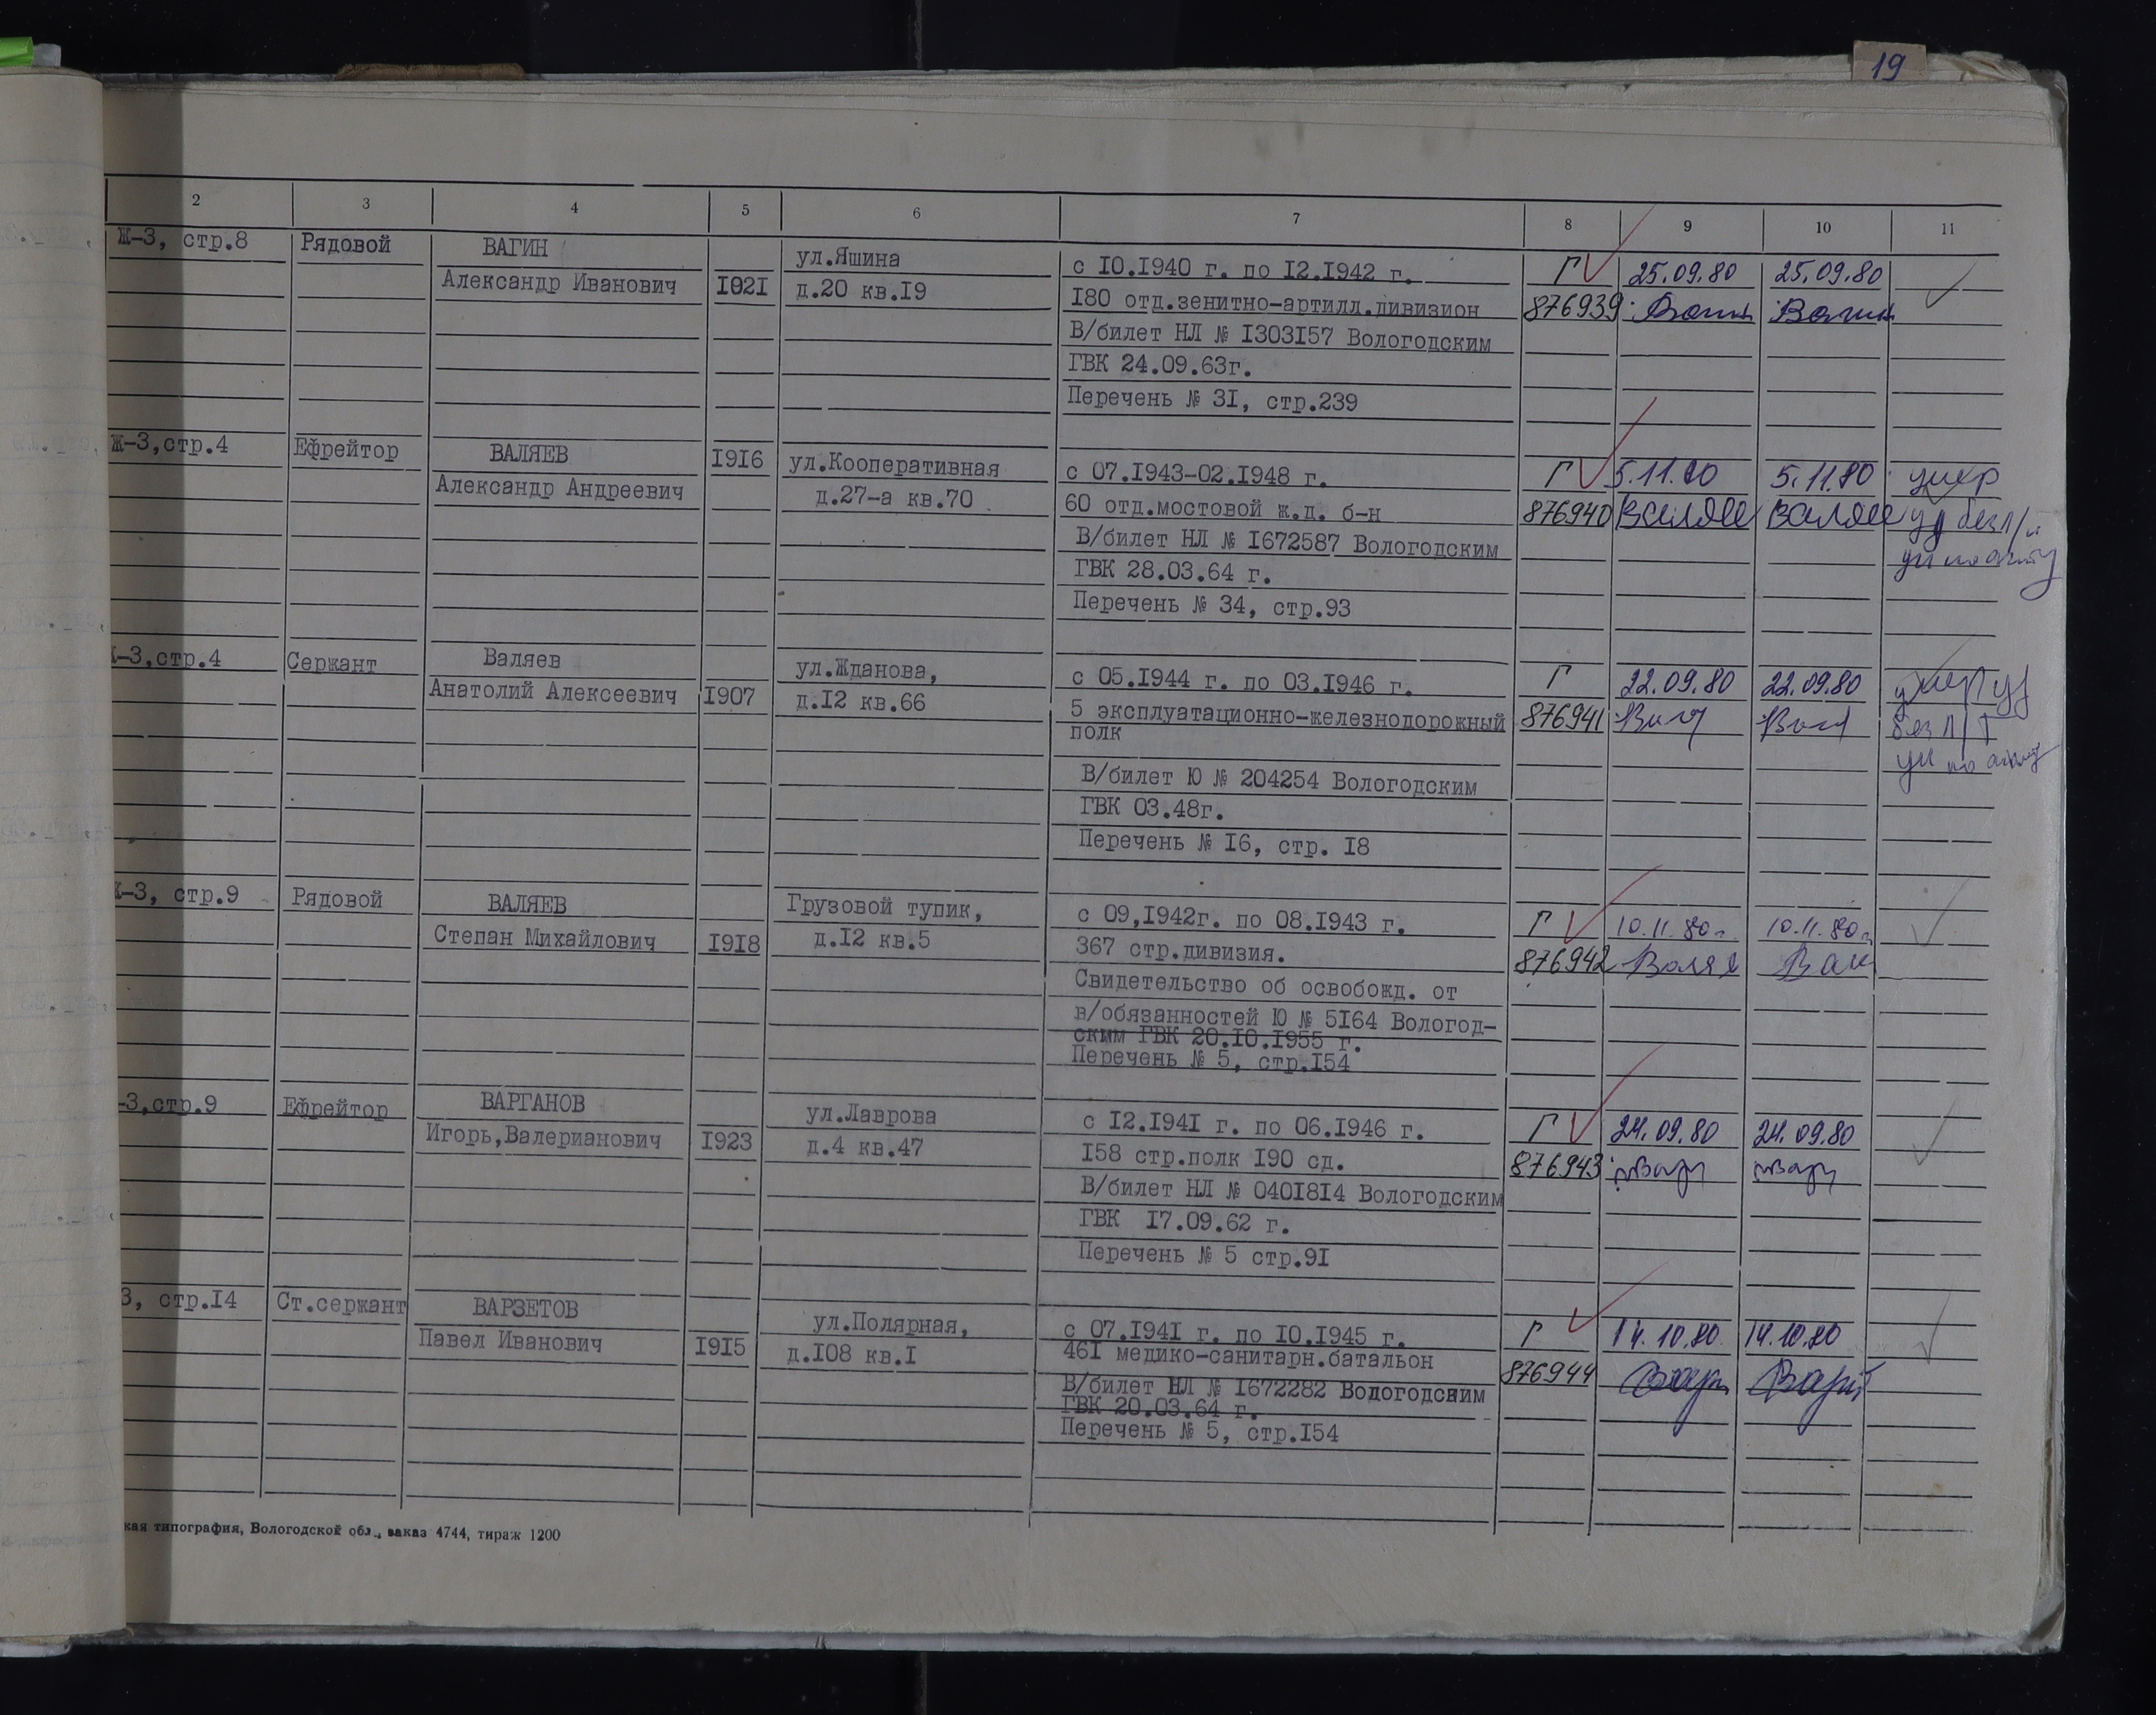 19
2 3 4 5 6 7 8 9 10 11
Ж-3, стр.8 Рядовой ВАГИН ул.Яшина с I0.I940 г. по I2.I942 г. Г 25.09.80 25.09.80
Александр Иванович I92I д.20 кв.I9 I80 отд.зенитно-артилл.дивизион 876939 Вагин Вагин
В/билет НЛ № I303I57 Вологодским
ГВК 24.09.63г.
Перечень № 3I, стр.239
Ж-3,стр.4 Ефрейтор ВАЛЯЕВ I9I6 ул.Кооперативная с 07.I943-02.I948 г. Г 5.11.80 5.11.80 умер
Александр Андреевич д.27-а кв.70 60 отд.мостовой ж.д. б-н 876940 Валяев Валяев уд без
В/билет НЛ № I672587 Вологодским по акту
ГВК 28.03.64 г.
Перечень № 34, стр.93
-3,стр.4 Сержант Валяев ул.Жданова, с 05.I944 г. по 03.I946 г. Г 22.09.80 22.09.80 умер уд
Анатолий Алексеевич I907 д.I2 кв.66 5 эксплуатационно-железнодорожный 876941 без
полк по акту
В/билет Ю № 204254 Вологодским
ГВК 03.48г.
Перечень № I6, стр. I8
-3, стр.9 Рядовой ВАЛЯЕВ Грузовой тупик, с 09,I942г. по 08.I943 г. Г 10.11.80г. 10.11.80г.
Степан Михайлович I9I8 д.I2 кв.5 367 стр.дивизия. 876942 Валяе Вал
Свидетельство об освобожд. от
в/обязанностей Ю № 5I64 Вологод-
ским ГВК 20.I0.I955 г.
Перечень № 5, стр.I54
-3,стр.9 Ефрейтор ВАРГАНОВ ул.Лаврова с I2.I94I г. по 06.I946 г. Г 24.09.80 24.09.80
Игорь,Валерианович I923 д.4 кв.47 I58 стр.полк I90 сд. 876943
В/билет НЛ № 040I8I4 Вологодским
ГВК I7.09.62 г.
Перечень № 5 стр.9I
3, стр.I4 Ст.сержант ВАРЗЕТОВ ул.Полярная, с 07.I94I г. по I0.I945 г. Г 14.10.80 14.10.80
Павел Иванович I9I5 д.I08 кв.I 46I медико-санитарн.батальон 876944
В/билет НЛ № I672282 Вологодским
ГВК 20.03.64 г.
Перечень № 5, стр.I54
кая типография, Вологодской обл., заказ 4744, тираж 1200